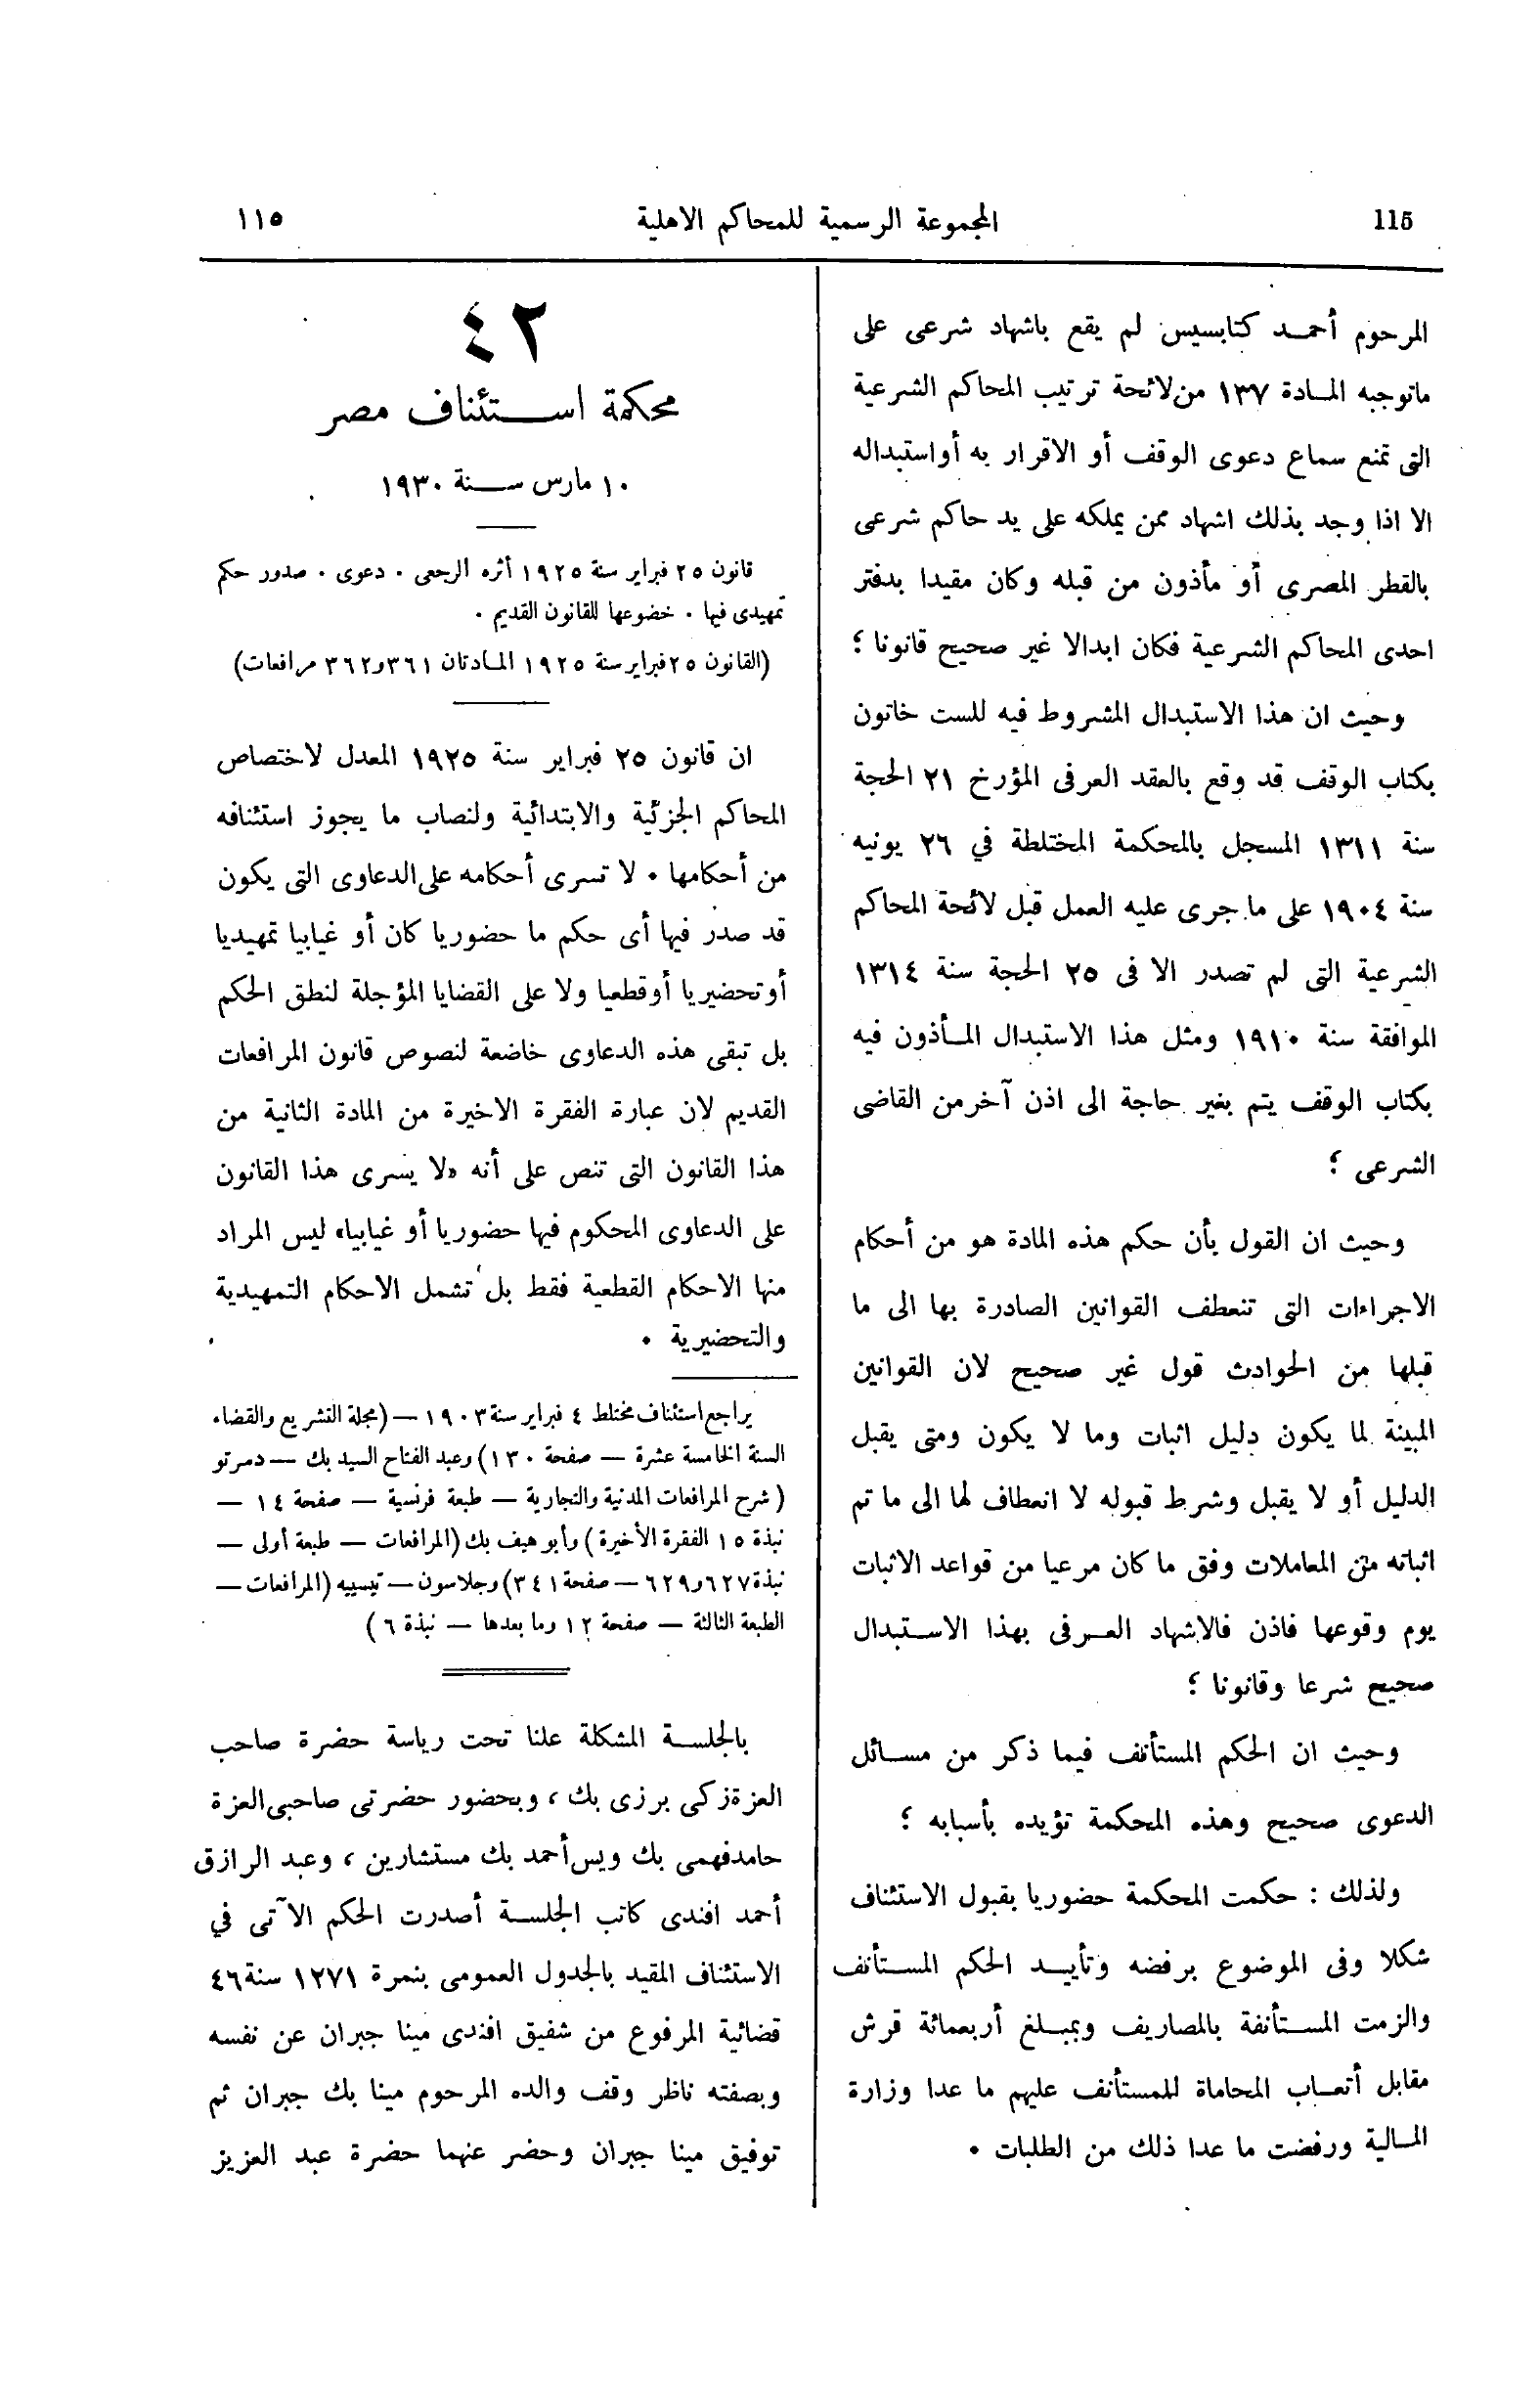 115
المجموعة الرسمية للمحاكم الاهلية
١١٥
المرحوم أحمد كتابسيس لم يقع باشهاد شرعى على
ماتوجبه المادة ١٣٧ من لائحة ترتيب المحاكم الشرعية
التى تمنع سماع دعوى الوقف أو الاقرار به أو استبداله
الا اذا وجد بذلك اشهاد ممن يملكه على يد حاكم شرعى
بالقطر المصرى أو مأذون من قبله وكان مقيدا بدفتر
احدى المحاكم الشرعية فكان ابدالا غير صحيح قانونا ؛
وحيث ان هذا الاستبدال المشروط فيه للست خاتون
بكتاب الوقف قد وقع بالعقد العرفى المؤرخ ٢١ الحجة
سنة ١٣١١ المسجل بالمحكمة المختلطة في ٢٦ يونيه
سنة ١٩٠٤ على ما جرى عليه العمل قبل لائحة المحاكم
الشرعية التى لم تصدر الا فى ٢٥ الحجة سنة ١٣١٤
الموافقة سنة ١٩١٠ ومثل هذا الاستبدال المأذون فيه
بكتاب الوقف يتم بغير حاجة الى اذن آخر من القاضى
الشرعى ؛
وحيث ان القول بأن حكم هذه المادة هو من أحكام
الاجراءات التى تنعطف القوانين الصادرة بها الى ما
قبلها من الحوادث قول غير صحيح لان القوانين
المبينة لما يكون دليل اثبات وما لا يكون ومتى يقبل
الدليل أو لا يقبل وشرط قبوله لا انعطاف لها الى ما تم
اثباته من المعاملات وفق ما كان مرعيا من قواعد الاثبات
يوم وقوعها فاذن فالاشهاد العرفى بهذا الاستبدال
صحيح شرعا وقانونا ؛
وحيث ان الحكم المستأنف فيما ذكر من مسائل
الدعوى صحيح وهذه المحكمة تؤيده بأسبابه ؛
ولذلك : حكمت المحكمة حضوريا بقبول الاستئناف
شكلا وفى الموضوع برفضه وتأييد الحكم المستأنف
والزمت المستأنفة بالمصاريف وبمبلغ أربعمائة قرش
مقابل أتعاب المحاماة للمستأنف عليهم ما عدا وزارة
المالية ورفضت ما عدا ذلك من الطلبات .
٤٢
محكمة استئناف مصر
١٠ مارس سنة ١٩٣٠
قانون ٢٥ فبراير سنة ١٩٢٥ أثره الرجعى . دعوى . صدور حكم
تمهيدى فيها . خضوعها للقانون القديم .
(القانون ٢٥ فبراير سنة ١٩٢٥ المادتان ٣٦١ و ٣٦٢ مرافعات)
ان قانون ٢٥ فبراير سنة ١٩٢٥ المعدل لاختصاص
المحاكم الجزئية والابتدائية ولنصاب ما يجوز استئنافه
من أحكامها . لا تسرى أحكامه على الدعاوى التى يكون
قد صدر فيها أى حكم ما حضوريا كان أو غيابيا تمهيديا
أو تحضيريا أو قطعيا ولا على القضايا المؤجلة لنطق الحكم
بل تبقى هذه الدعاوى خاضعة لنصوص قانون المرافعات
القديم لان عبارة الفقرة الاخيرة من المادة الثانية من
هذا القانون التى تنص على أنه «لا يسرى هذا القانون
على الدعاوى المحكوم فيها حضوريا أو غيابيا» ليس المراد
منها الاحكام القطعية فقط بل تشمل الاحكام التمهيدية
والتحضيرية .
يراجع استئناف مختلط ٤ فبراير سنة ١٩٠٣ — (مجلة التشريع والقضاء
السنة الخامسة عشرة — صفحة ١٣٠) وعبد الفتاح السيد بك — دمرتو
(شرح المرافعات المدنية والتجارية — طبعة فرنسية — صفحة ١٤ —
نبذة ١٥ الفقرة الأخيرة) وأبو هيف بك (المرافعات — طبعة أولى —
نبذة ٦٢٧ و ٦٢٩ — صفحة ٣٤١) وجلاسون — تيسييه (المرافعات —
الطبعة الثالثة — صفحة ١٢ وما بعدها — نبذة ٦)
بالجلسة المشكلة علنا تحت رياسة حضرة صاحب
العزة زكى برزى بك ، وبحضور حضرتى صاحبى العزة
حامد فهمى بك ويس أحمد بك مستشارين ، وعبد الرازق
أحمد افندى كاتب الجلسة أصدرت الحكم الآتى في
الاستئناف المقيد بالجدول العمومى بنمرة ١٢٧١ سنة ٤٦
قضائية المرفوع من شفيق افندى مينا جبران عن نفسه
وبصفته ناظر وقف والده المرحوم مينا بك جبران ثم
توفيق مينا جبران وحضر عنهما حضرة عبد العزيز